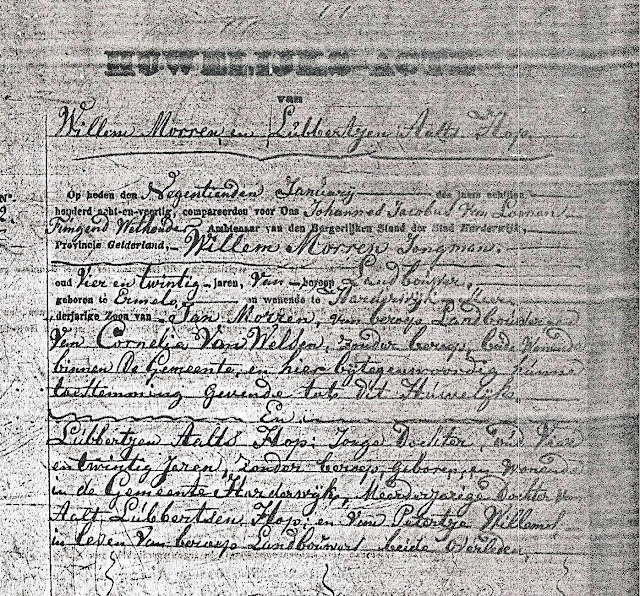 HUWELIJKS-ACTE
van
Willem Morren en Lubbertzen Aalts Hop.
Op heden den Negentienden January des jaars achttien
honderd acht-en-veertig, compareerden voor Ons Johannes Jacobus Van
Fungend Wethouder, Ambtenaar van den Burgerlijken Stand der Stad Harderwijk,
Provincie Gelderland, Willem Morren Jongman.
oud Vier en twintig jaren, Van beroep Landbouwer,
geboren te Ermelo, en wonende te Harderwijk Meer-
derjarige Zoon van Jan Morren, van beroep Landbouwer en
Van Cornelia Van Welden, zonder beroep, beide Wonende
binnen De Gemeente, en hier bytegenwoordig hunne
toestemming gevende tot dit Huwelijk
En
Lubbertzen Aalts Hop: Jonge Dochter, oud Vier
en twintig Jaren, Zonder beroep, geboren, en Wonende
in de Gemeente Harderwijk, Meerderjarige Dochter van
Aalt Lubbertsen Hop, en Van Petertje Willems
in leven Van beroep Landbouwers beide Overleden,